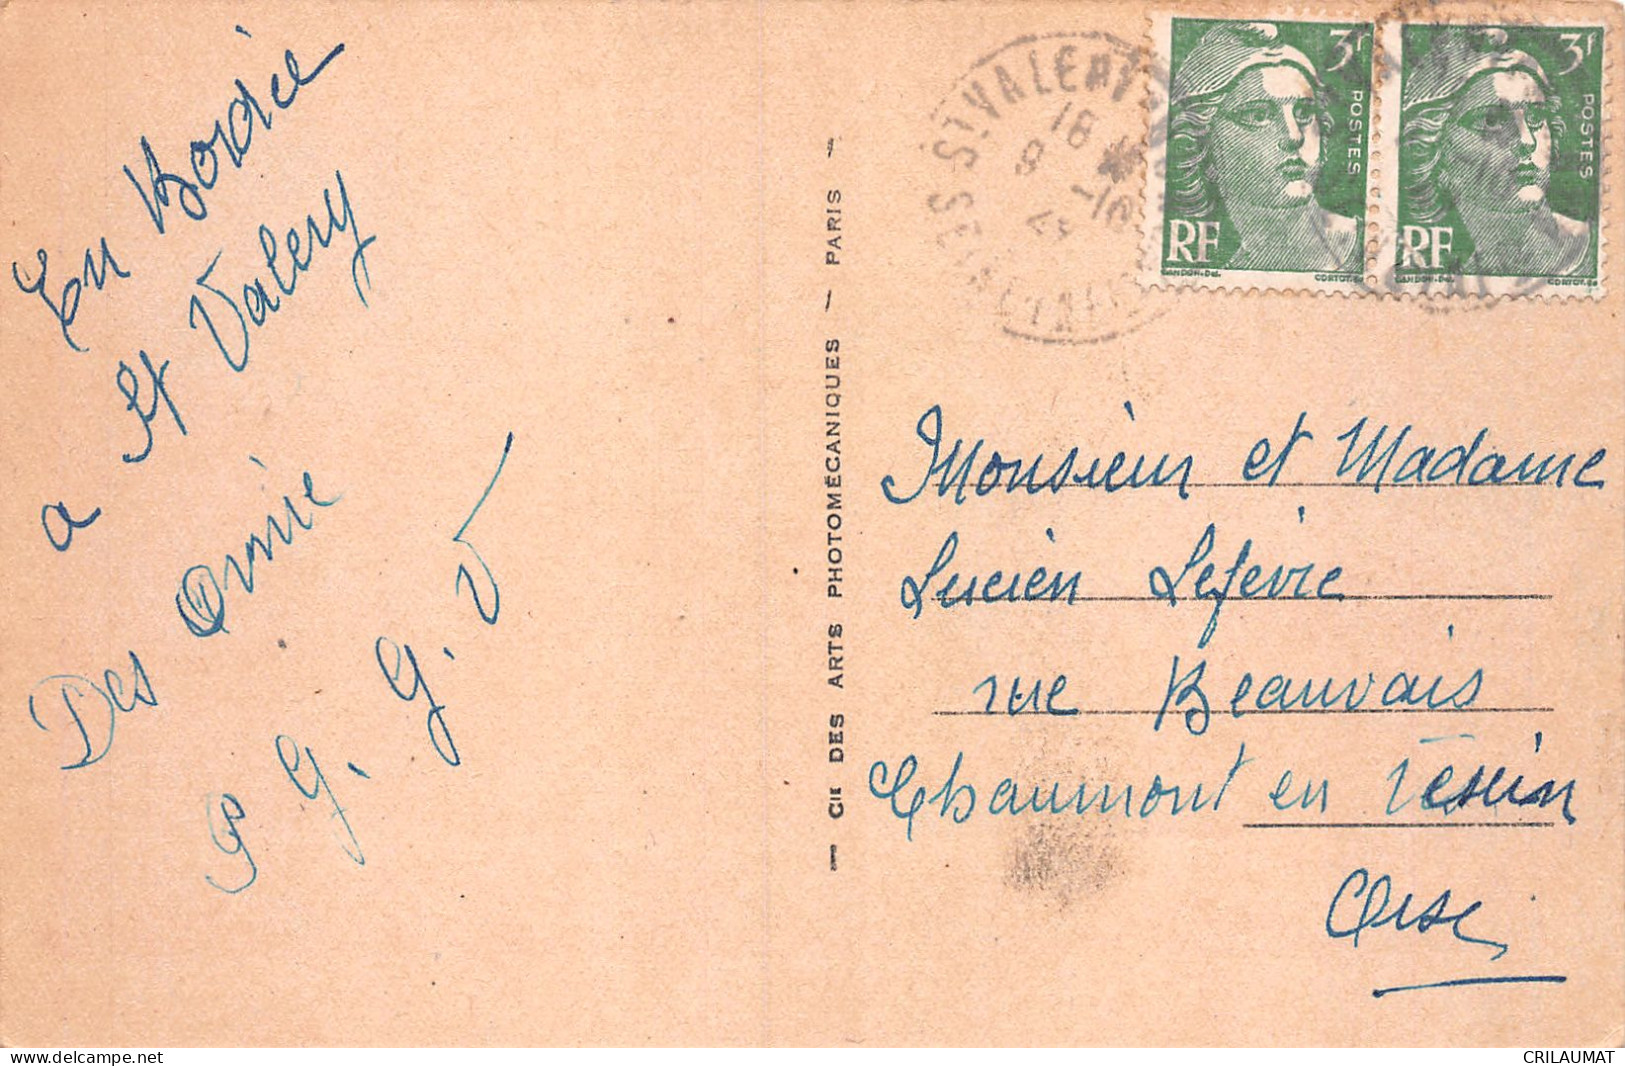 En Bordée
a St Valery
Des Ornie
P. G. G. V
— Cie DES ARTS PHOTOMÉCANIQUES — PARIS —
St VALERY
18
3f
POSTES
RF
GANDON-Del.
CORTOT.Sc
3f
POSTES
RF
GANDON-Del.
CORTOT.Sc
Monsieur et Madame
Lucien Lefevre
rue Beauvais
Chaumont en Vexin
Oise
http://www.delcampe.net
CRILAUMAT